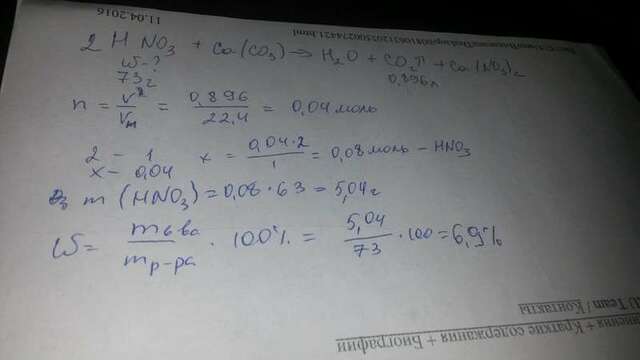 11.04.2016
2HNO₃ + Ca(CO₃) → H₂O + CO₂↑ + Ca(NO₃)₂
ω-?
73г
0,896л
n = V/Vm = 0,896/22,4 = 0,04 моль
2 - 1
x - 0,04
x = 0,04·2/1 = 0,08 моль - HNO₃
m(HNO₃) = 0,08·63 = 5,04г
ω = m в-ва/m р-ра · 100% = 5,04/73 · 100 = 6,9%
Team / Контакты
+ Краткие содержания + Биографии